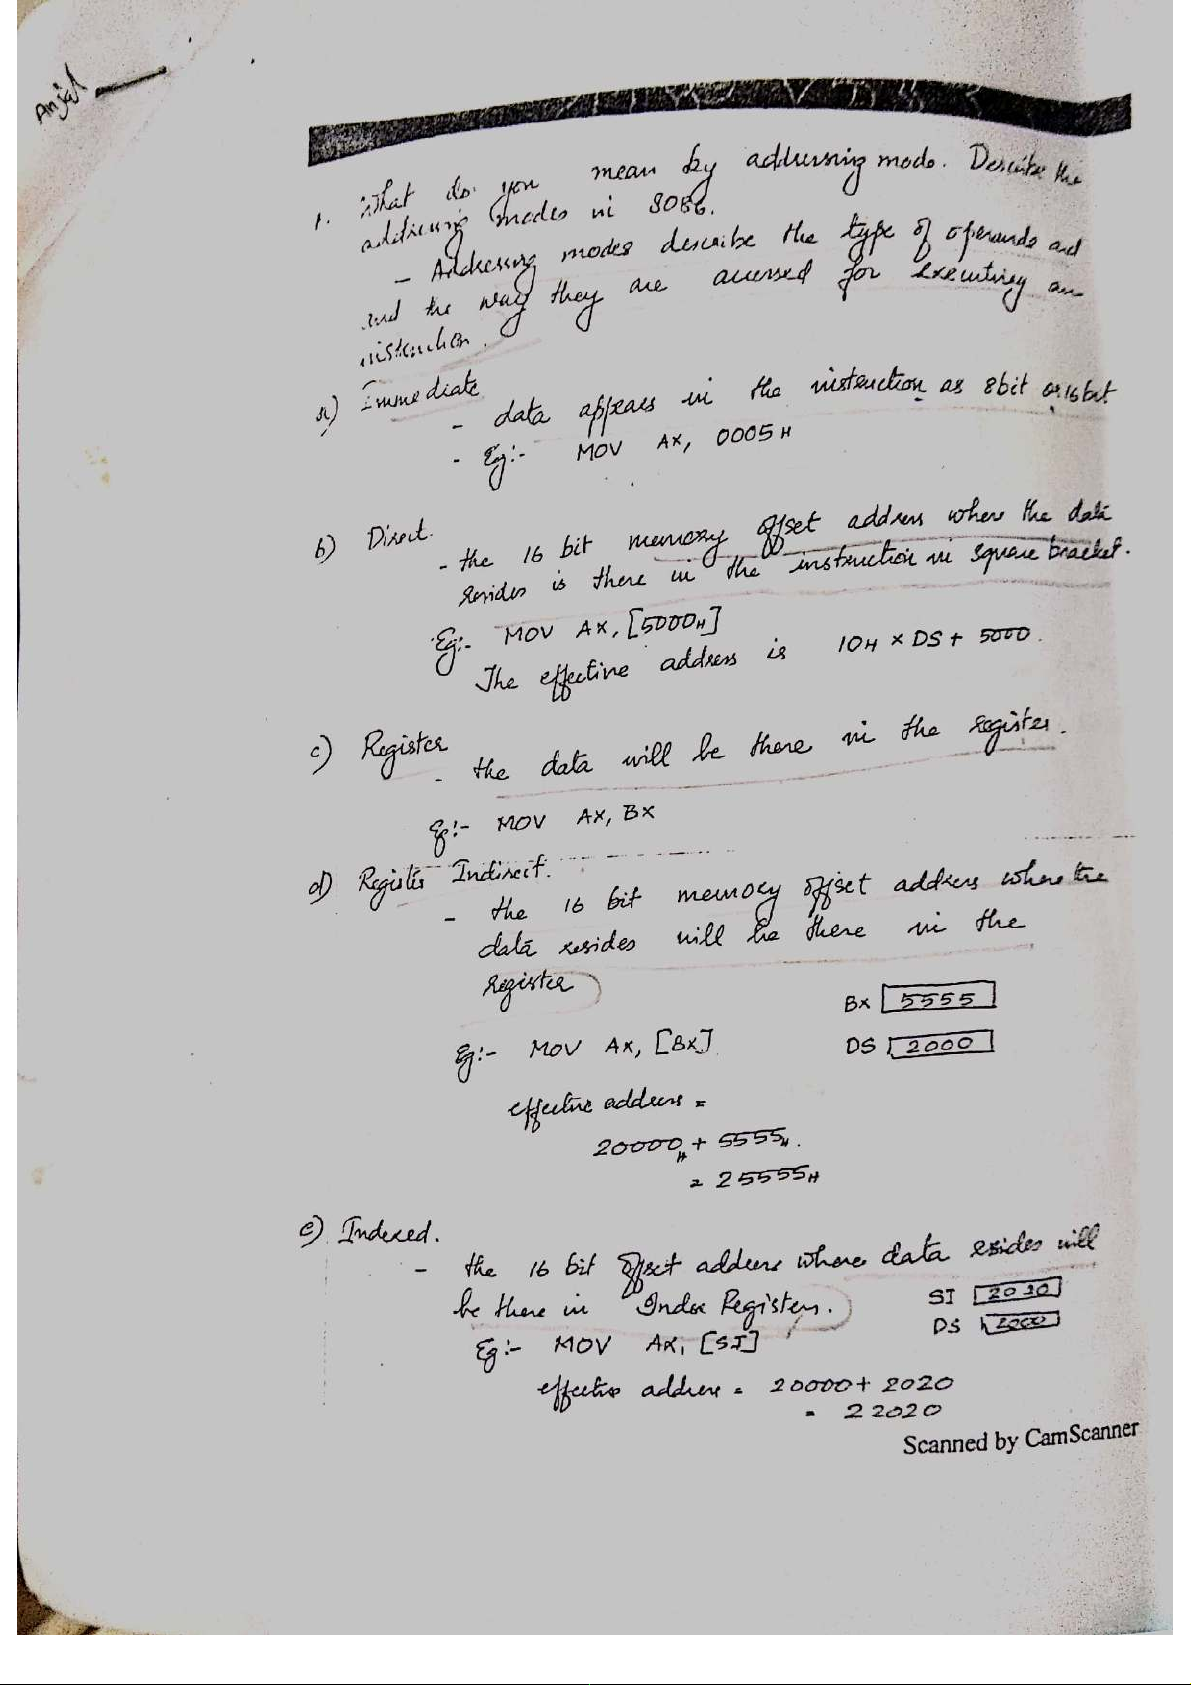 Anjel
1. What do you mean by addressing mode. Describe the
addressing modes in 8086.
- Addressing modes describe the type of operands and
and the way they are accessed for executing an
instruction.
a) Immediate
- data appears in the instruction as 8bit or 16bit
- Eg:- MOV AX, 0005H
b) Direct.
- the 16 bit memory offset address where the data
resides is there in the instruction in square bracket.
Eg:- MOV AX, [5000H]
The effective address is 10H × DS + 5000.
c) Register
- the data will be there in the register.
Eg:- MOV AX, BX
d) Register Indirect.
- the 16 bit memory offset address where the
data resides will be there in the
register
BX 5555
Eg:- MOV AX, [BX]
DS 2000
effective address =
20000H + 5555H.
= 25555H
e) Indexed.
- the 16 bit offset address where data resides will
be there in Index Registers.
SI 2020
DS 2000
Eg:- MOV AX, [SI]
effective address = 20000 + 2020
= 22020
Scanned by CamScanner